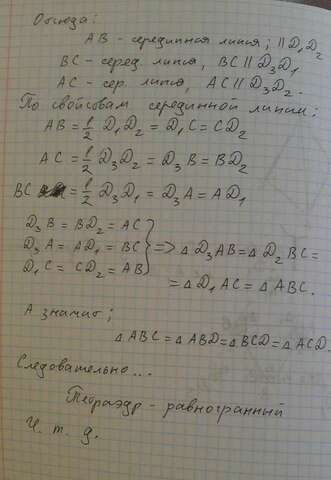 Отсюда:
AB - серединная линия; || D₁D₂
BC - серед. линия, BC || D₃D₁
AC - сер. линия, AC || D₃D₂.
По свойствам серединной линии:
AB = 1/2 D₁D₂ = D₁C = CD₂
AC = 1/2 D₃D₂ = D₃B = BD₂
BC = 1/2 D₃D₁ = D₃A = AD₁
D₃B = BD₂ = AC
D₃A = AD₁ = BC } => △D₃AB = △D₂BC =
D₁C = CD₂ = AB
= △D₁AC = △ABC.
А значит;
△ABC = △ABD = △BCD = △ACD
Следовательно...
Тетраэдр - равногранный
Ч. т. д.